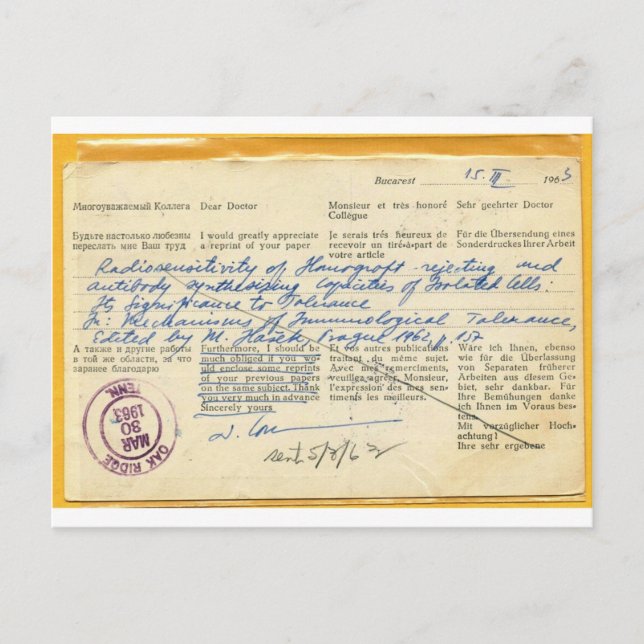 Bucarest 15. III 1963
Многоуважаемый Коллега
Будьте настолько любезны
переслать мне Ваш труд
Dear Doctor
I would greatly appreciate
a reprint of your paper
Monsieur et très honoré
Collègue
Je serais très heureux de
recevoir un tiré-à-part de
votre article
Sehr geehrter Doctor
Für die Übersendung eines
Sonderdruckes Ihrer Arbeit
Radiosensitivity of Homograft-rejecting and
antibody synthesizing Capacities of Isolated Cells:
Its Significance to Tolerance
In: Mechanisms of Immunological Tolerance,
Edited by M. Hašek, Prague 1962, p. 157
А также и другие работы
в той же области, за что
заранее благодарю
Furthermore, I should be
much obliged if you wo-
uld enclose some reprints
of your previous papers
on the same subject. Thank
you very much in advance
Sincerely yours
Et vos autres publications
traitant du même sujet.
Avec mes remerciments,
veuillez agréer, Monsieur,
l'expression des mes sen-
timents les meilleurs.
Wäre ich Ihnen, ebenso
wie für die Überlassung
von Separaten früherer
Arbeiten aus diesem Ge-
biet, sehr dankbar. Für
Ihre Bemühungen danke
ich Ihnen im Voraus bes-
tens.
Mit vorzüglicher Hoch-
achtung!
Ihre sehr ergebene
sent 5/8/63
OAK RIDGE
MAR
30
1963
TENN.